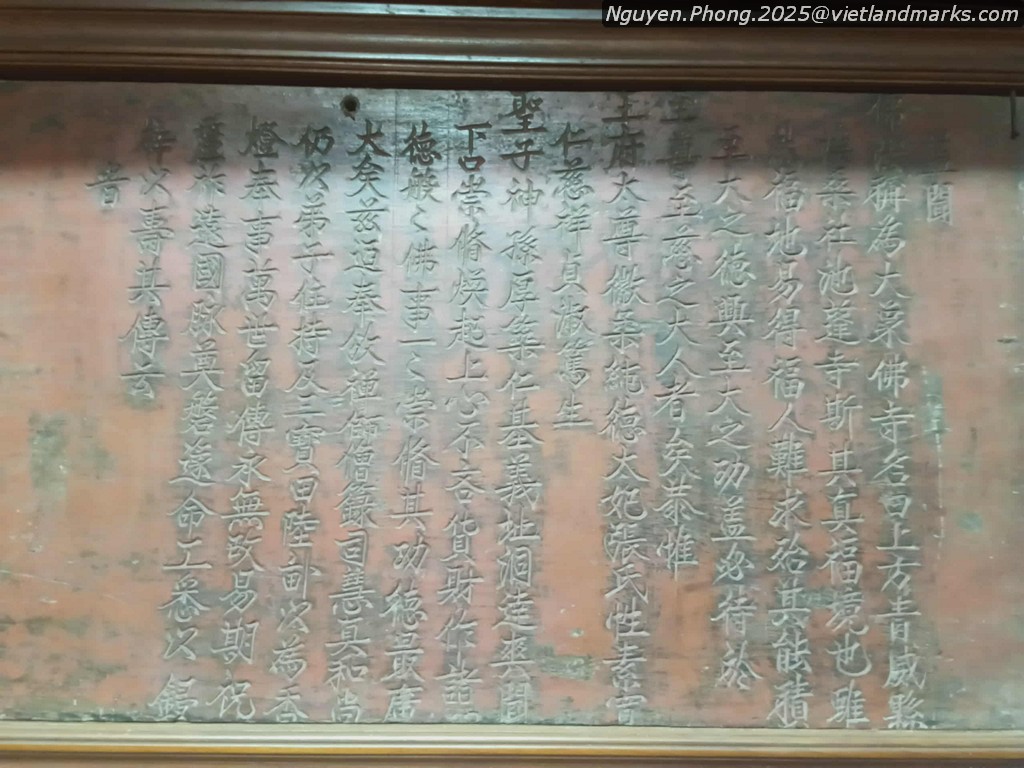 Nguyen.Phong.2025@vietlandmarks.com
聞
稱為大 佛寺名曰上方青威縣
桑社池蓬寺斯其真福境也雖
福地易得福人難求殆其能積
至大之德興至大之功蓋必待於
至尊至慈之大人者矣恭惟
王府大尊徽柔純德大妃張氏性素
仁慈祥貞淑篤生
聖子神孫厚築仁基義址洞達
下口崇脩煥起上心不吝貨財作
德般〻佛事一〻崇脩其功德最廣
大矣茲迺奉 禪師僧錄司慧真和尚
仍以弟子住持及三寶田陸 以為香
燈奉事萬世留傳永無改易期祝
祚遠國脉奠磐遂命工悉以 鋟
梓以壽其傳云
昔